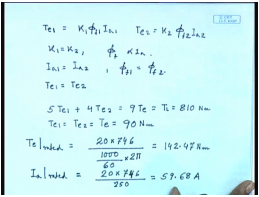 Te1 = K1 ϕf1 Ia1    Te2 = K2 ϕf2 Ia2
K1 = K2, ϕf α Ia.
Ia1 = Ia2, ϕf1 = ϕf2.
Te1 = Te2
5 Te1 + 4 Te2 = 9 Te = TL = 810 Nm
Te1 = Te2 = Te = 90 Nm
Te|rated = 20 × 746 / (1000/60 × 2π) = 142.47 Nm
Ia|rated = 20 × 746 / 250 = 59.68 A